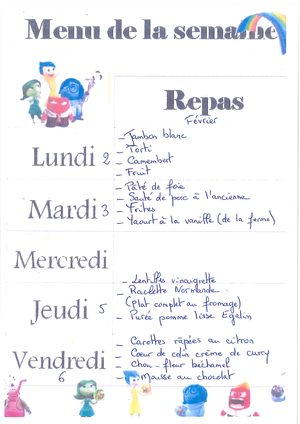 Menu de la semaine
Repas
Février
Lundi 2
- Jambon blanc
- Torti
- Camembert
- Fruit
Mardi 3
- Pâté de foie
- Sauté de porc à l'ancienne
- Frites
- Yaourt à la vanille (de la ferme)
Mercredi
Jeudi 5
- Lentilles vinaigrette
- Raclette Normande
(Plat complet au fromage)
- Purée pomme lisse Egalin
Vendredi 6
- Carottes râpées au citron
- Coeur de colin crème de curry
- Chou-fleur béchamel
- Mousse au chocolat